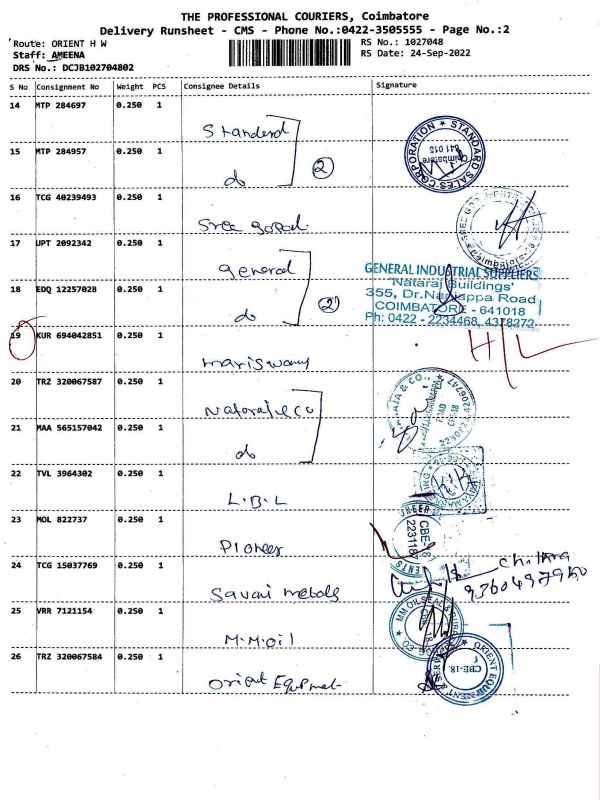 THE PROFESSIONAL COURIERS, Coimbatore
Delivery Runsheet - CMS - Phone No.:0422-3505555 - Page No.:2
Route: ORIENT H W
RS No.: 1027048
Staff: AMEENA
RS Date: 24-Sep-2022
DRS No.: DCJB102704802
S No Consignment No Weight PCS Consignee Details Signature
14 MTP 284697 0.250 1
Standerd
STANDARD SALES CORPORATION
Coimbatore
641 018
15 MTP 284957 0.250 1
do
2
16 TCG 40239493 0.250 1
Sree gopal
17 JPT 2092342 0.250 1
general
GENERAL INDUSTRIAL SUPPLIERS
'Nataraj Buildings'
355, Dr.Nanjappa Road
COIMBATORE - 641018
Ph: 0422 - 2234468, 4378272
18 EDQ 12257028 0.250 1
do
2
19 KUR 694042851 0.250 1
mariswamy
H/L
20 TRZ 320067587 0.250 1
Natoraj & co
21 MAA 565157042 0.250 1
do
22 TVL 3964302 0.250 1
L.B.L
23 MOL 822737 0.250 1
Pioneer
CBE-18
2231187
24 TCG 15037769 0.250 1
Savani metals
25 VRR 7121154 0.250 1
M.M.oil
26 TRZ 320067584 0.250 1
Orient Equpmet
ORIENT EQUIPMENT
CBE-18.